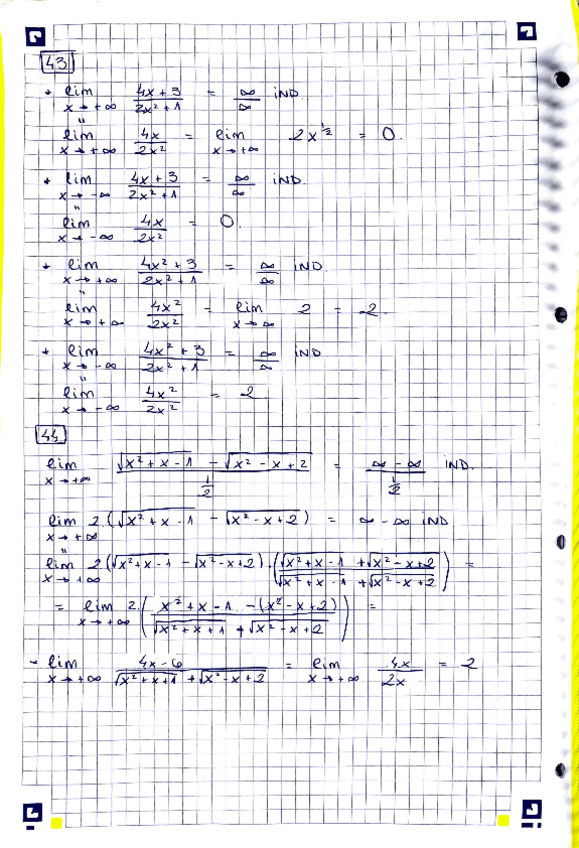 43
* lim x→+∞ (4x + 3)/(2x² + 1) = ∞/∞ IND.
"
lim x→+∞ 4x/2x² = lim x→+∞ 2x^½ = 0.
* lim x→-∞ (4x + 3)/(2x² + 1) = ∞/∞ IND.
"
lim x→-∞ 4x/2x² = 0.
* lim x→+∞ (4x² + 3)/(2x² + 1) = ∞/∞ IND
"
lim x→+∞ 4x²/2x² = lim x→∞ 2 = 2.
* lim x→-∞ (4x² + 3)/(2x² + 1) = ∞/∞ IND
"
lim x→-∞ 4x²/2x² = 2.
44
lim x→+∞ (√(x² + x - 1) - √(x² - x + 2))/(1/2) = (∞ - ∞)/(1/2) IND.
lim x→+∞ 2.(√(x² + x - 1) - √(x² - x + 2)) = ∞ - ∞ IND
"
lim x→+∞ 2(√(x² + x - 1) - √(x² - x + 2)).((√(x² + x - 1) + √(x² - x + 2))/(√(x² + x - 1) + √(x² - x + 2))) =
= lim x→+∞ 2.((x² + x - 1 - (x² - x + 2))/(√(x² + x + 1) + √(x² - x + 2))) =
- lim x→+∞ (4x - 6)/(√(x² + x + 1) + √(x² - x + 2)) = lim x→+∞ 4x/2x = 2